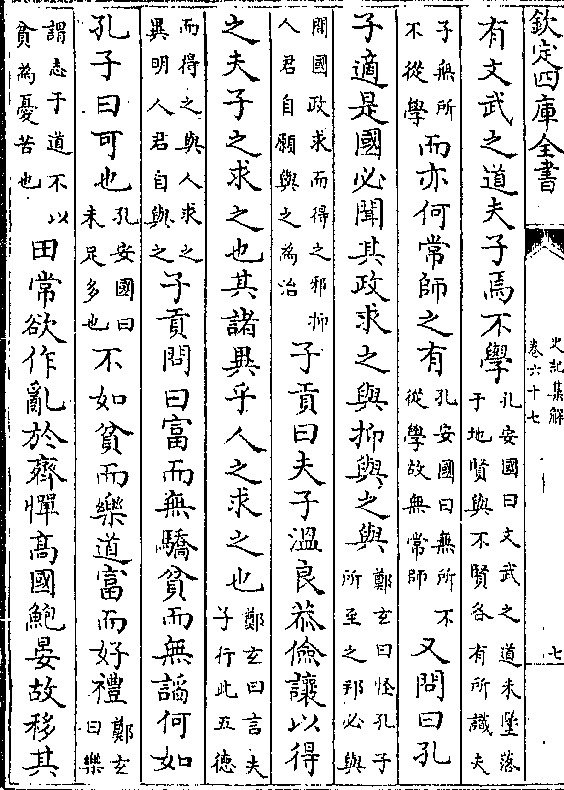 欽定四庫全書
史記集解
卷六十七
七
有文武之道夫子焉不學孔安國曰文武之道未墜落于地賢與不賢各有所識夫
子無所不從學而亦何常師之有孔安國曰無所不從學故無常師又問曰孔
子適是國必聞其政求之與抑與之與鄭玄曰怪孔子所至之邦必與
聞國政求而得之邪抑人君自願與之為治子貢曰夫子溫良恭儉讓以得
之夫子之求之也其諸異乎人之求之也鄭玄曰言夫子行此五德
而得之與人求之異明人君自與之子貢問曰富而無驕貧而無諂何如
孔子曰可也孔安國曰未足多也不如貧而樂道富而好禮鄭玄曰樂
謂志于道不以貧為憂苦也田常欲作亂於齊憚高國鮑晏故移其